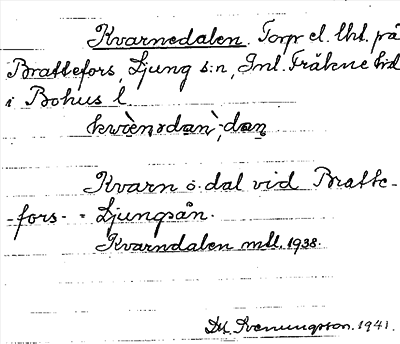 Kvarnedalen. Torp el. lht. på
Brattefors, Ljung s:n, Inl. Fräkne hd
i Bohus l.
Kvarn o. dal vid Bratte-
-fors- = Ljungsån.
Kvarndalen mtl. 1938.
D. H. Svenungsson. 1941.